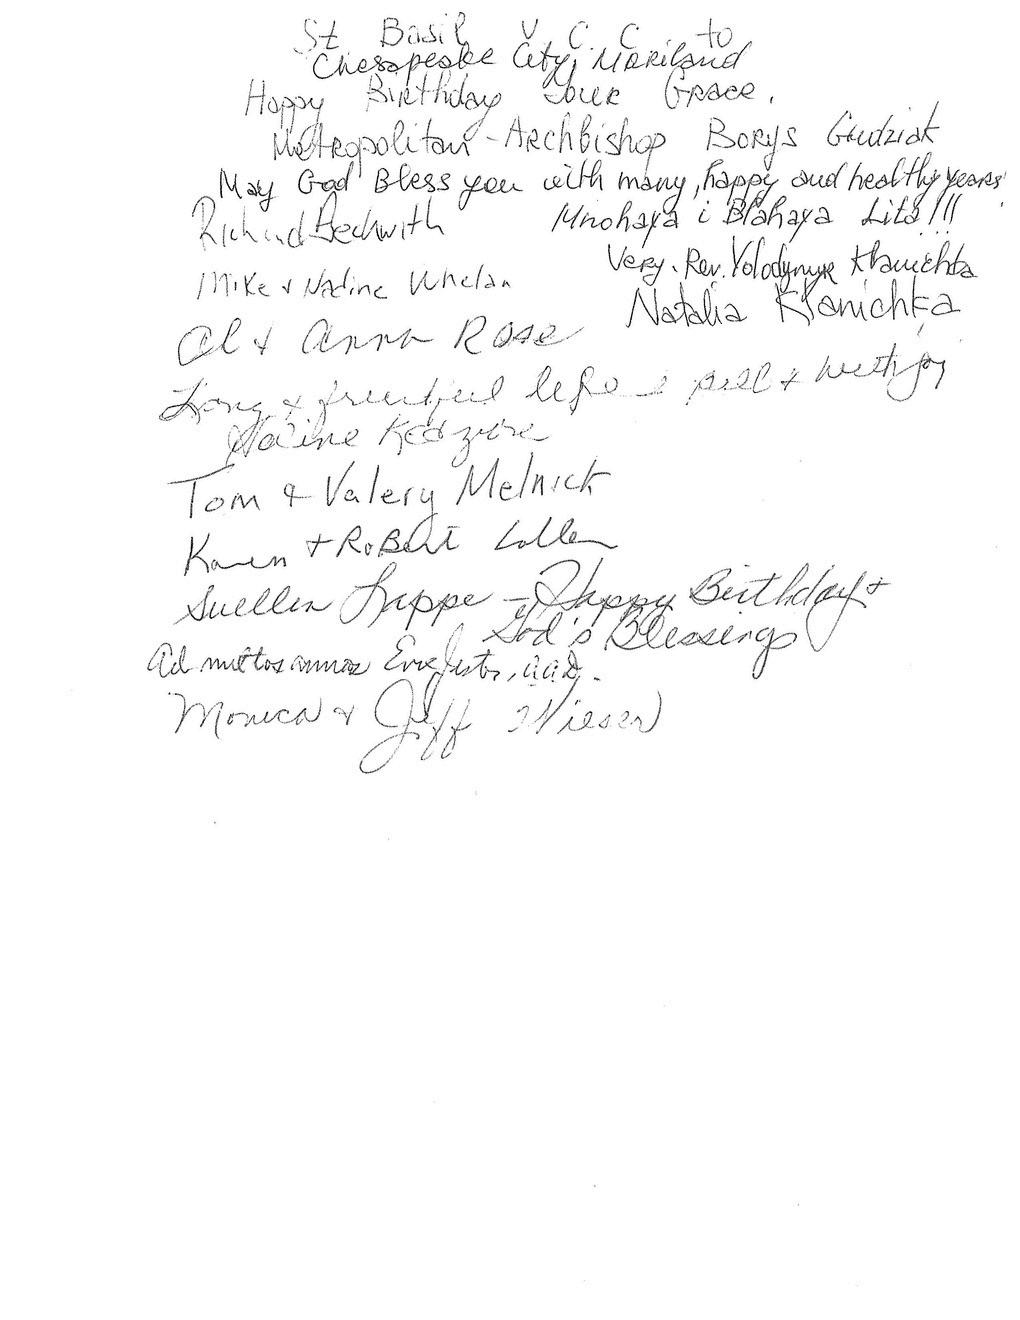 St Basil U C C to
Chesapeake City, Mariland
Happy Birthday Your Grace.
Metropolitan-Archbishop Borys Gudziak
May God Bless you with many, happy and healthy years!
Richard Beckwith
Mnohaya i Blahaya Lita!!!
Very. Rev. Volodymyr Klanichka
Mike & Nadine Whelan
Natalia Klanichka
Al & Anna Rose
Long & fruitful life & with joy
Tom & Valery Melnick
Karen + Robert
Suellen Lappe - Happy Birthday &
God's Blessings
Ad multos annos
Monica & Jeff Wieser